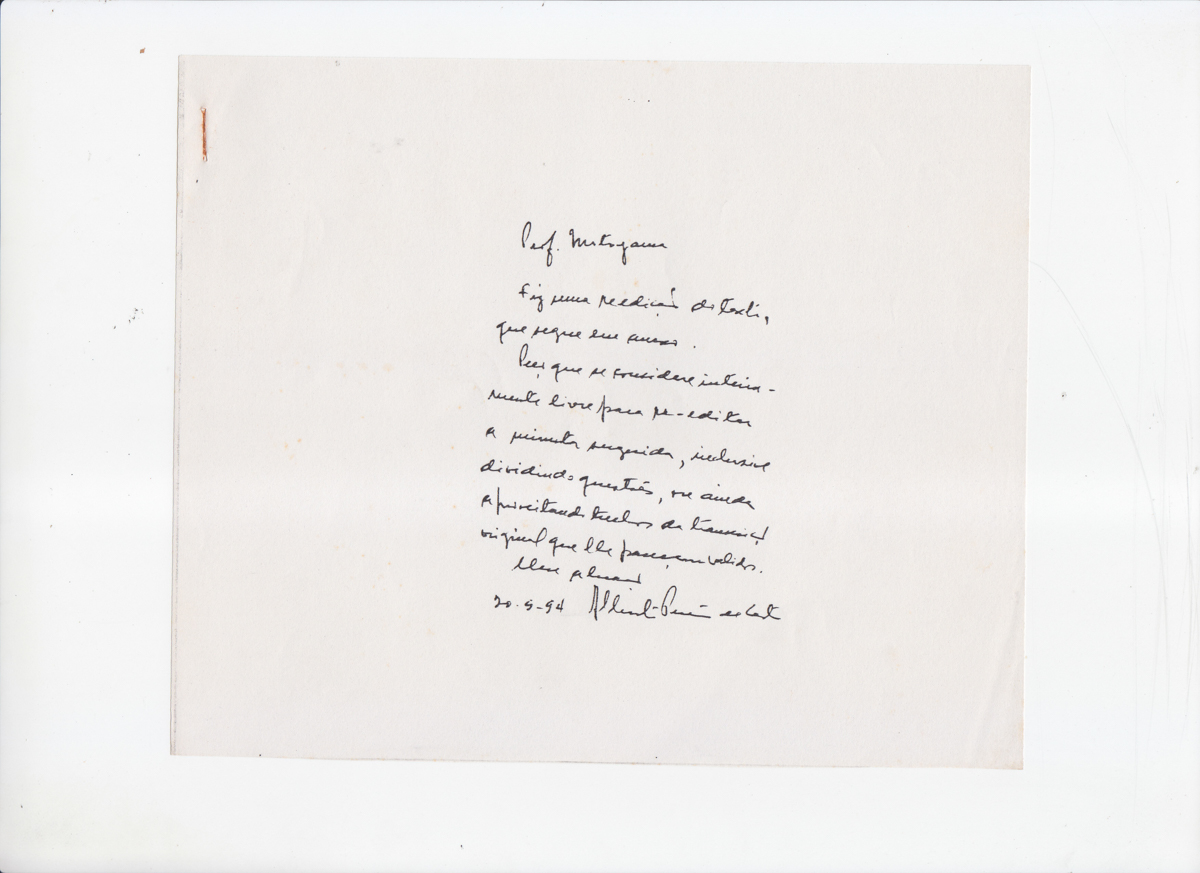 Prof. Motoyama
Fiz uma reedição do texto,
que segue em anexo.
Peço que se considere inteira-
mente livre para re-editar
a minuta sugerida, inclusive
dividindo questões, ou ainda
aproveitando trechos da transcrição
original que lhe pareçam validos.
Um abraço
20-9-94 Alberto Pereira de Castro